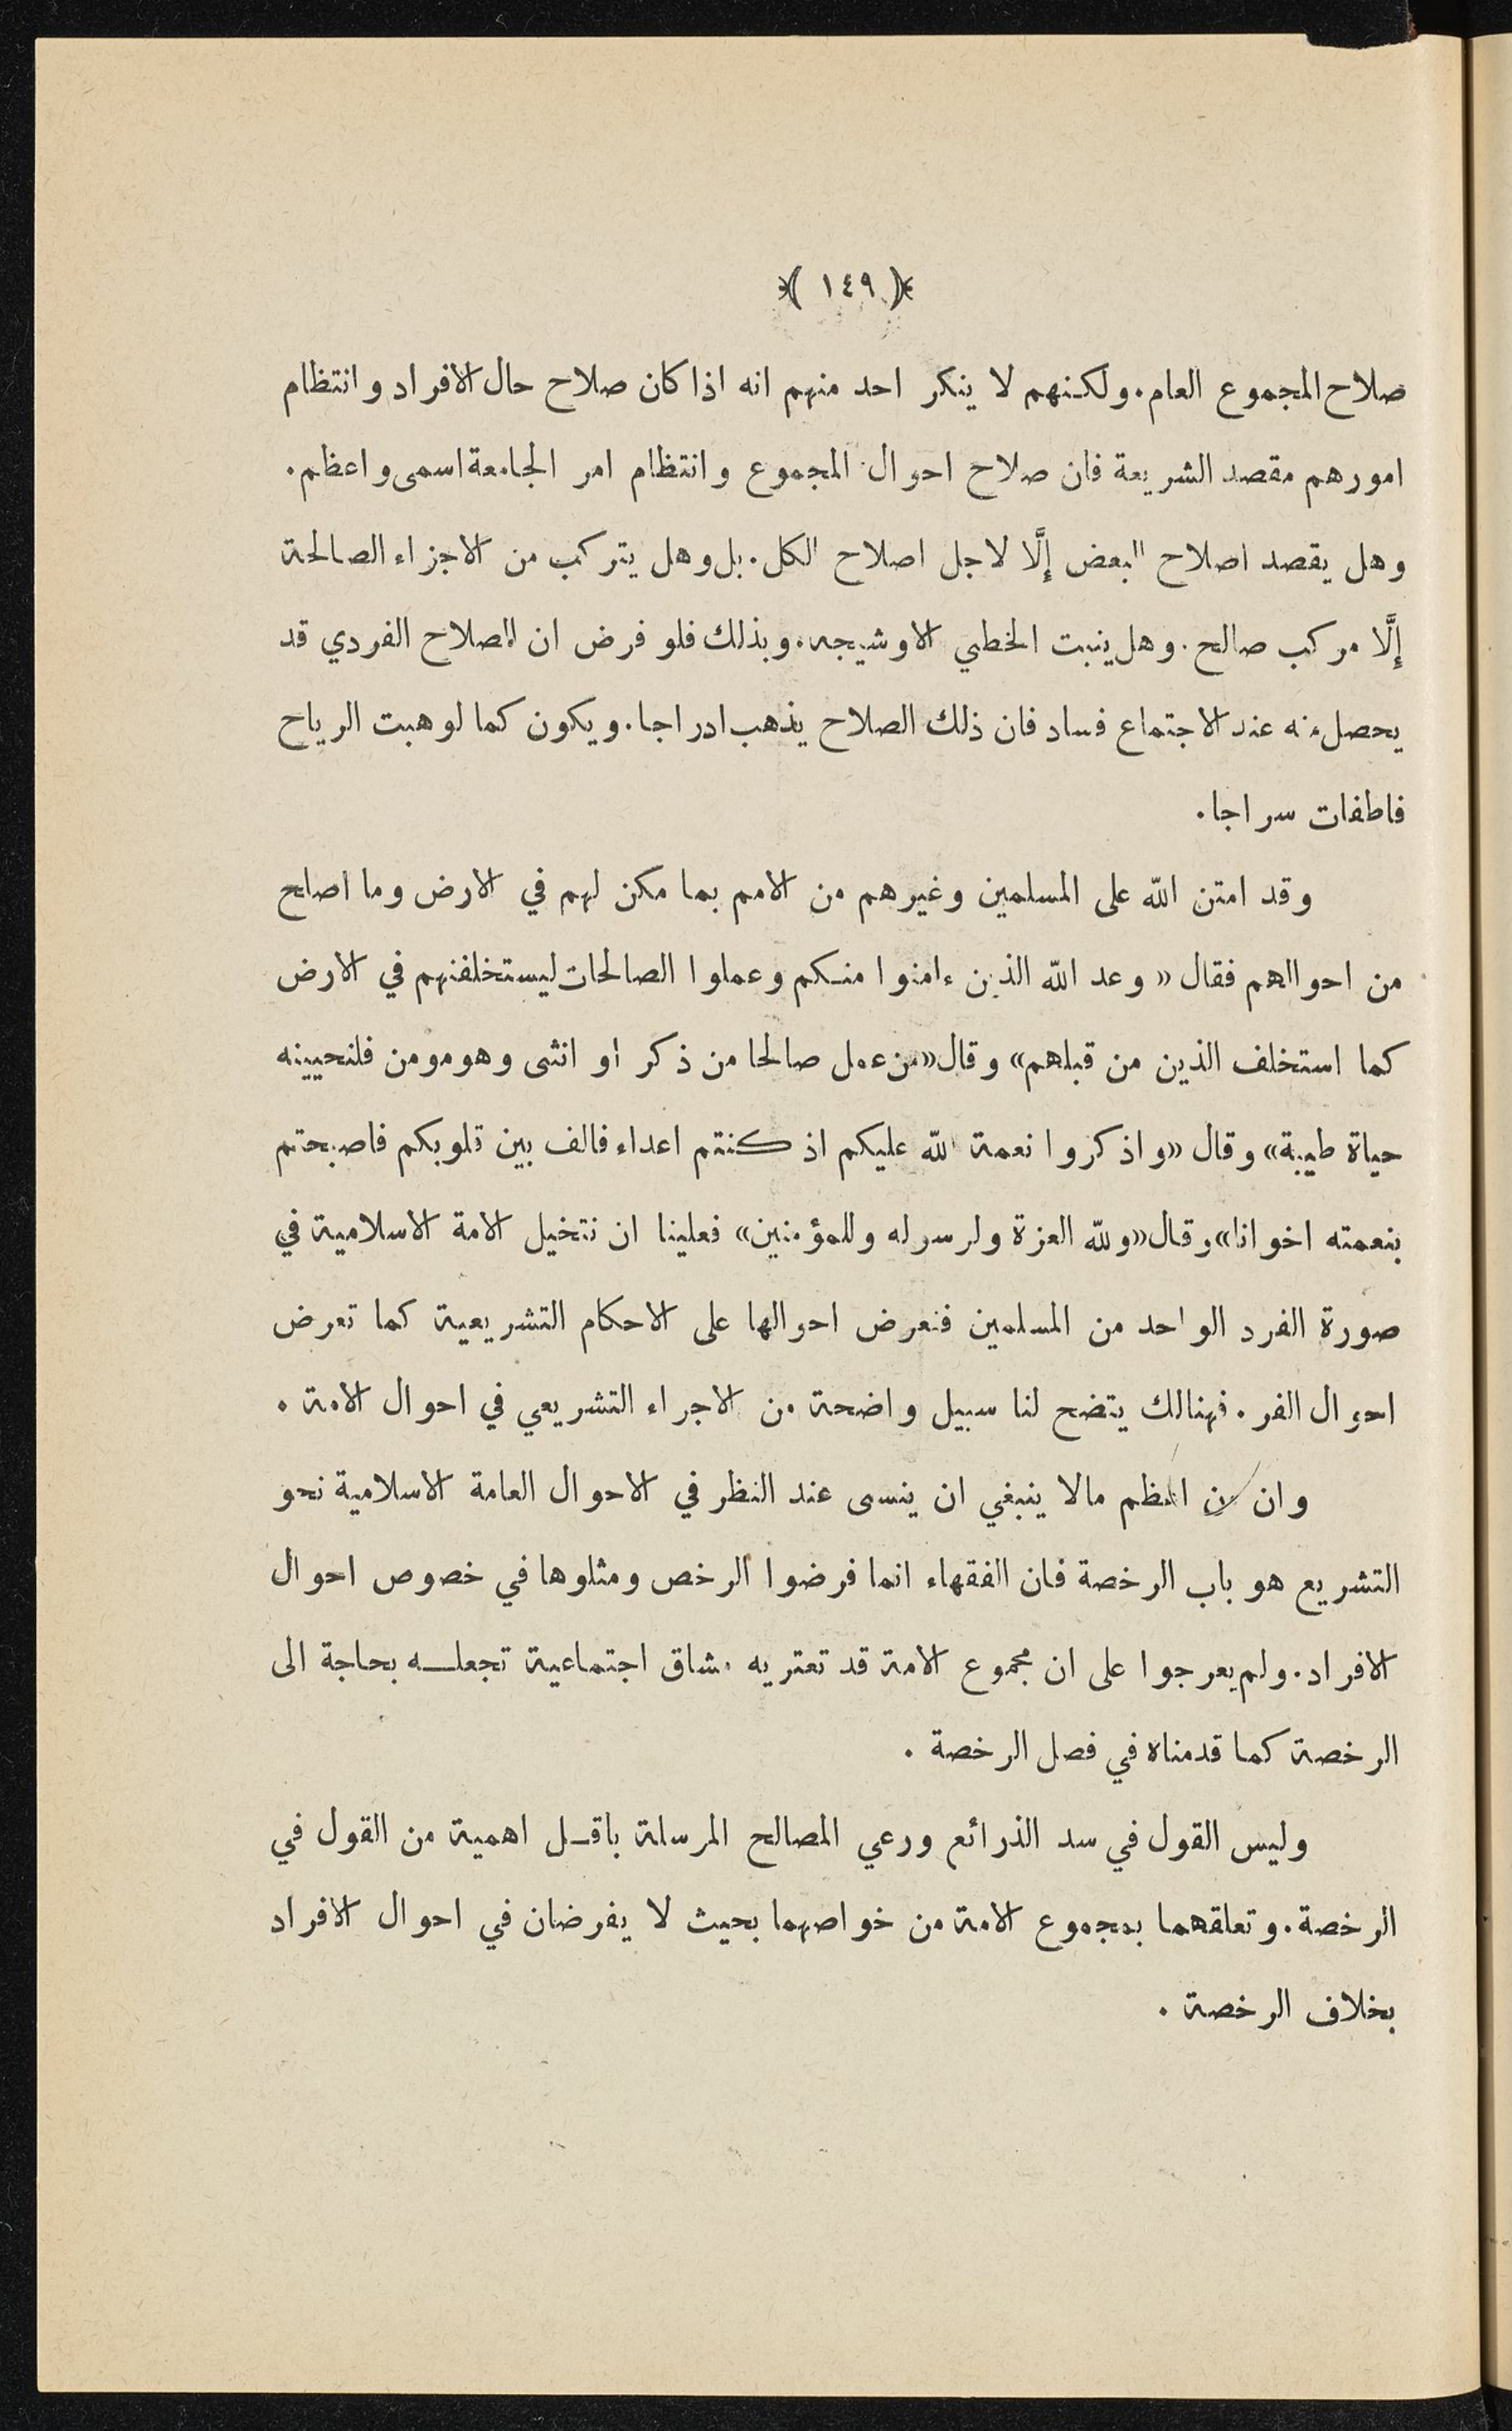 ﴿ ١٤٩ ﴾
صلاح المجموع العام. ولكنهم لا ينكر احد منهم انه اذا كان صلاح حال الافراد وانتظام
امورهم مقصد الشريعة فان صلاح احوال المجموع وانتظام امر الجامعة اسمى واعظم.
وهل يقصد اصلاح البعض إلَّا لاجل اصلاح الكل. بل وهل يتركب من الاجزاء الصالحة
إلَّا مركب صالح. وهل ينبت الخطي الا وشيجه. وبذلك فلو فرض ان الصلاح الفردي قد
يحصل منه عند الاجتماع فساد فان ذلك الصلاح يذهب ادراجا. ويكون كما لو هبت الرياح
فاطفات سراجا.
وقد امتن الله على المسلمين وغيرهم من الامم بما مكن لهم في الارض وما اصلح
من احوالهم فقال «وعد الله الذين ءامنوا منكم وعملوا الصالحات ليستخلفنهم في الارض
كما استخلف الذين من قبلهم» وقال «من عمل صالحا من ذكر او انثى وهو مومن فلنحيينه
حياة طيبة» وقال «واذكروا نعمة الله عليكم اذ كنتم اعداء فالف بين قلوبكم فاصبحتم
بنعمته اخوانا» وقال «ولله العزة ولرسوله وللمؤمنين» فعلينا ان نتخيل الامة الاسلامية في
صورة الفرد الواحد من المسلمين فنعرض احوالها على الاحكام التشريعية كما تعرض
احوال الفر. فهنالك يتضح لنا سبيل واضحة من الاجراء التشريعي في احوال الامة.
وان من اعظم مالا ينبغي ان ينسى عند النظر في الاحوال العامة الاسلامية نحو
التشريع هو باب الرخصة فان الفقهاء انما فرضوا الرخص ومثلوها في خصوص احوال
الافراد. ولم يعرجوا على ان مجموع الامة قد تعتريه مشاق اجتماعية تجعله بحاجة الى
الرخصة كما قدمناه في فصل الرخصة.
وليس القول في سد الذرائع ورعي المصالح المرسلة باقل اهمية من القول في
الرخصة. وتعلقهما بمجموع الامة من خواصهما بحيث لا يفرضان في احوال الافراد
بخلاف الرخصة.